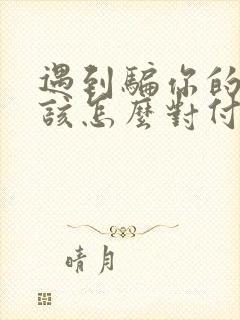 遇到騙你的
該怎麼對付
晴月